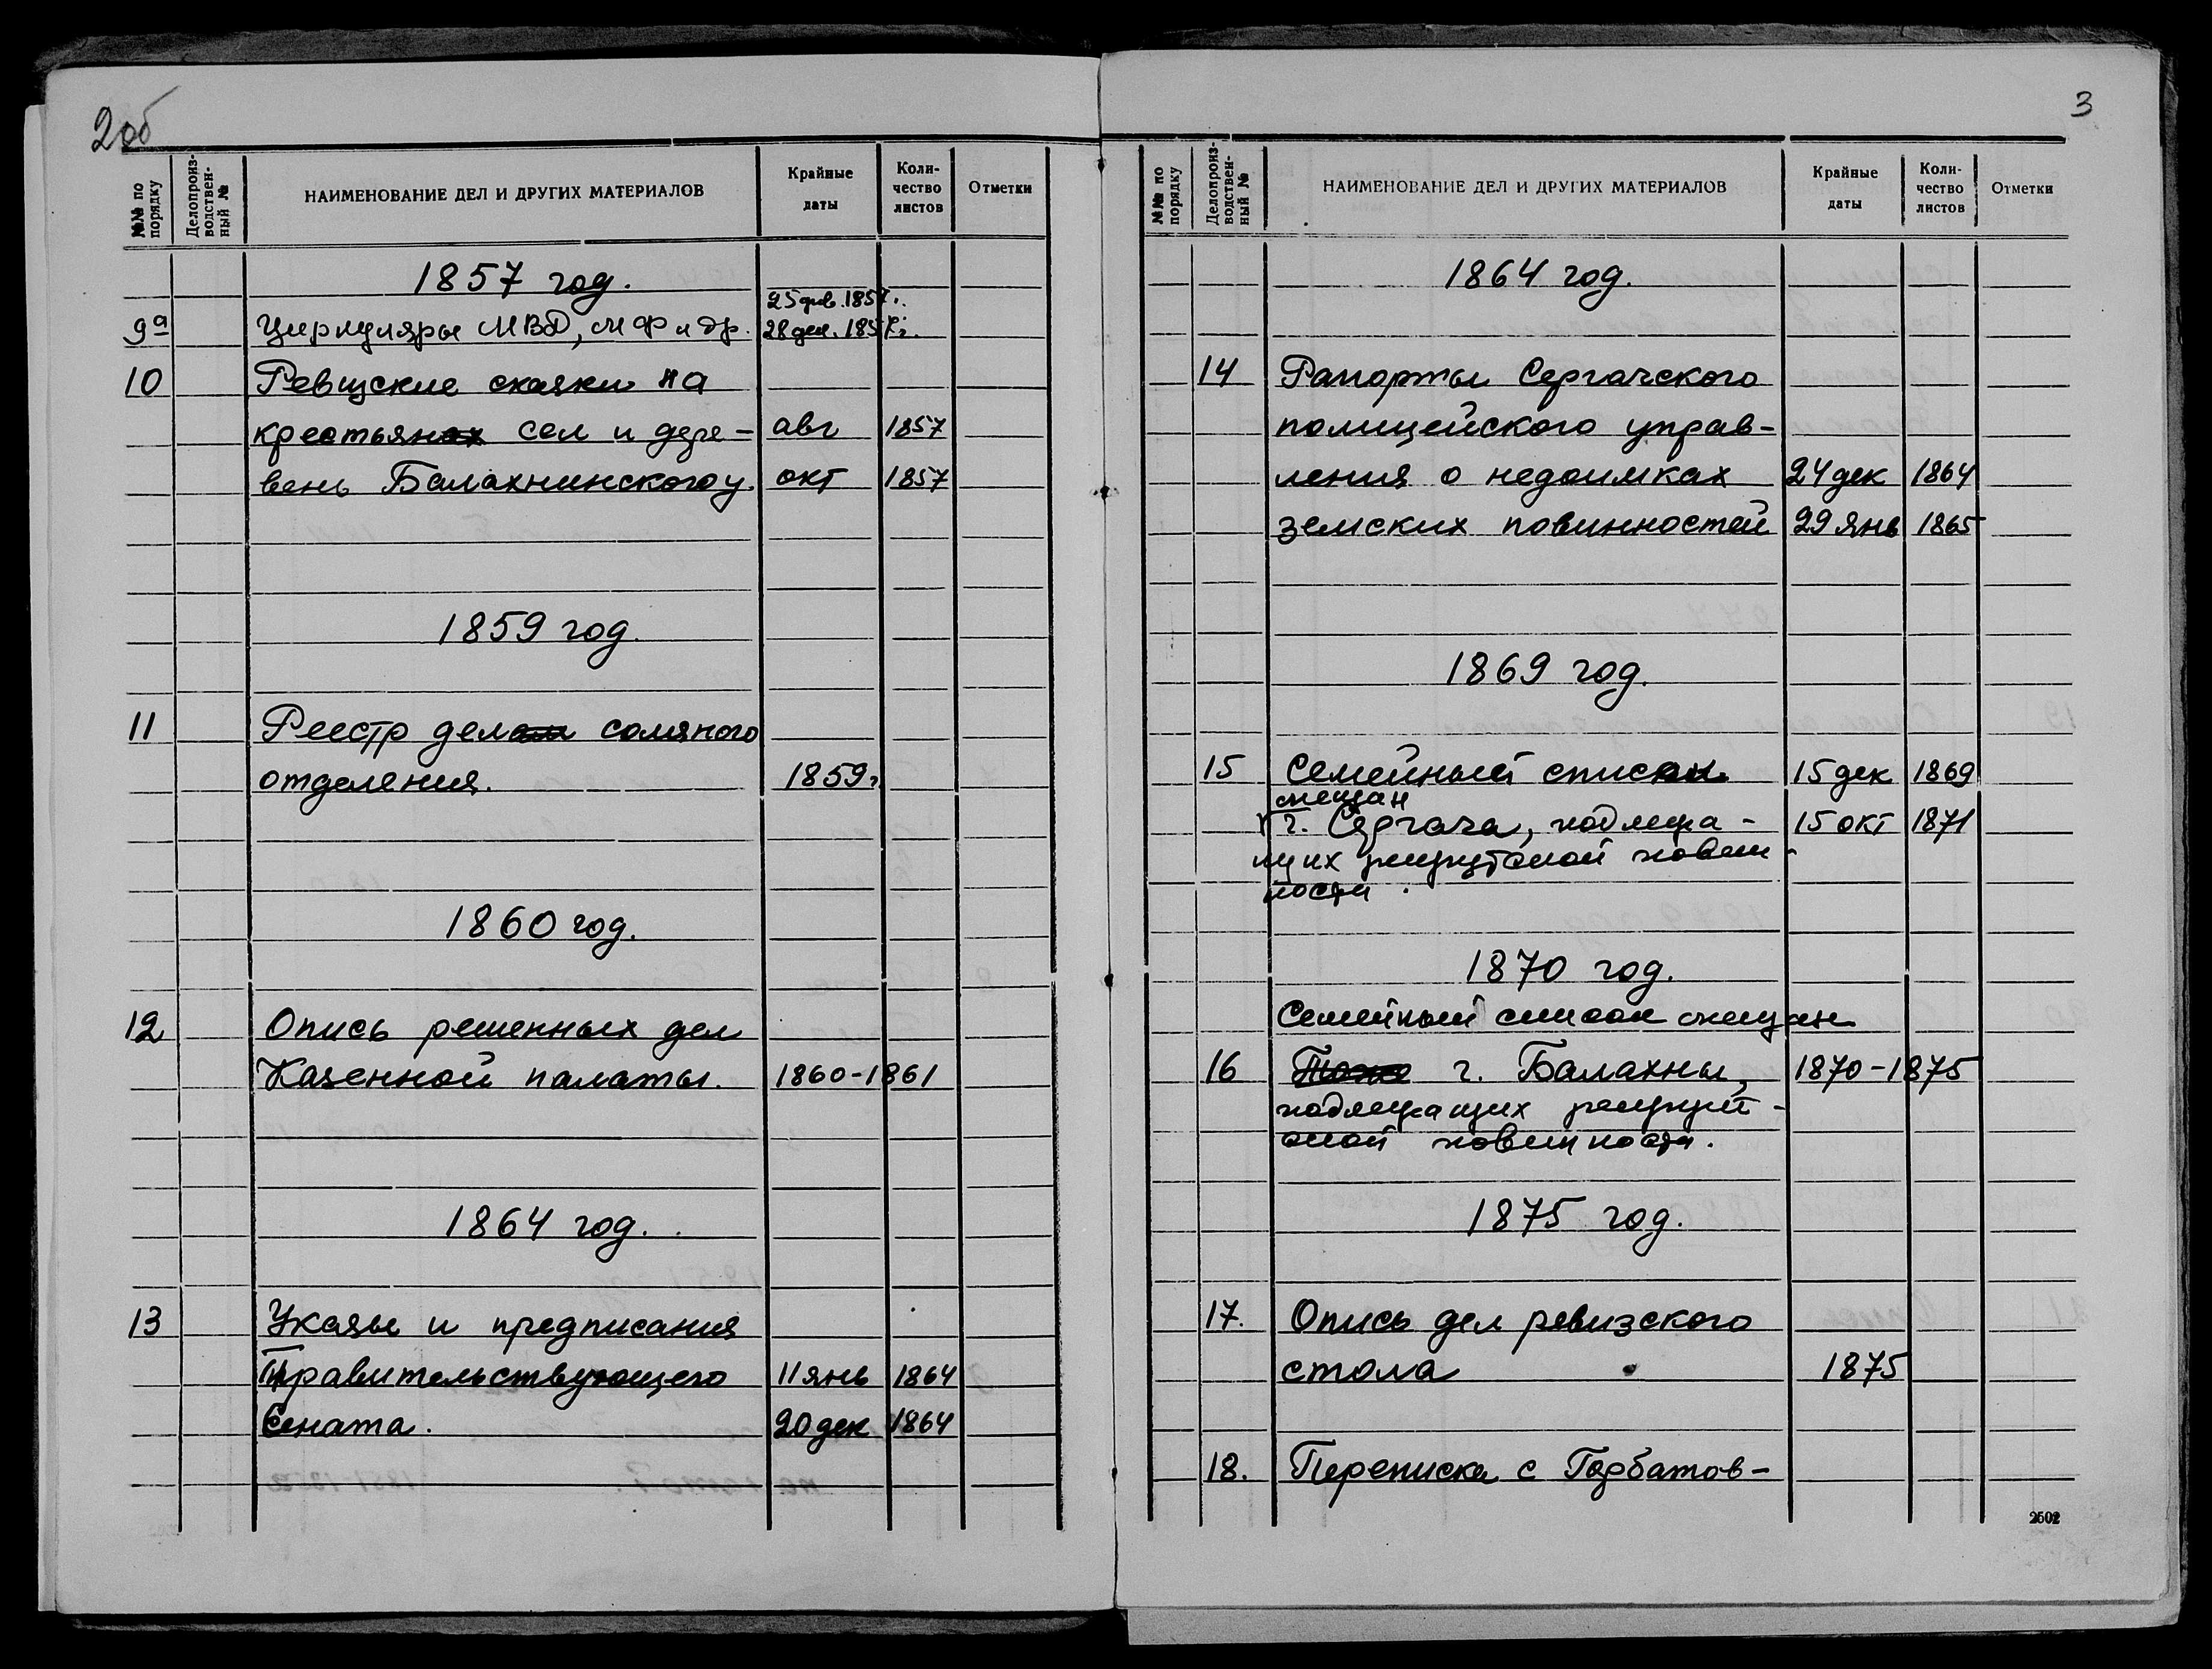 2об
№№ по порядку
Делопроиз-водствен-ный №
НАИМЕНОВАНИЕ ДЕЛ И ДРУГИХ МАТЕРИАЛОВ
Крайные даты
Коли-чество листов
Отметки
1857 год.
25 1857.
9а Циркуляры МВД, МФ и др. 28 дек. 1857 г.
10 Ревизские сказки на
крестьян сел и дере-
авг 1857
вень Балахнинского у. окт 1857
1859 год.
11 Реестр дел соляного
отделения. 1859г.
1860 год.
12 Опись решенных дел
Казенной палаты. 1860-1861
1864 год.
13 Указы и предписания
Правительствующего 11 янв 1864
Сената. 20 дек 1864
3
№№ по порядку
Делопроиз-водствен-ный №
НАИМЕНОВАНИЕ ДЕЛ И ДРУГИХ МАТЕРИАЛОВ
Крайные даты
Коли-чество листов
Отметки
1864 год.
14 Рапорты Сергачского
полицейского управ-
ления о недоимках 24 дек 1864
земских повинностей 29 янв 1865
1869 год.
15 Семейный список 15 дек 1869
мещан
г. Сергача, подлежа- 15 окт 1871
щих рекрутской повин-
ности.
1870 год.
Семейный список мещан
16 Тоже г. Балахны, 1870-1875
подлежащих рекрут-
ской повинности.
1875 год.
17. Опись дел ревизского
стола 1875
18. Переписка с Горбатов-
2502